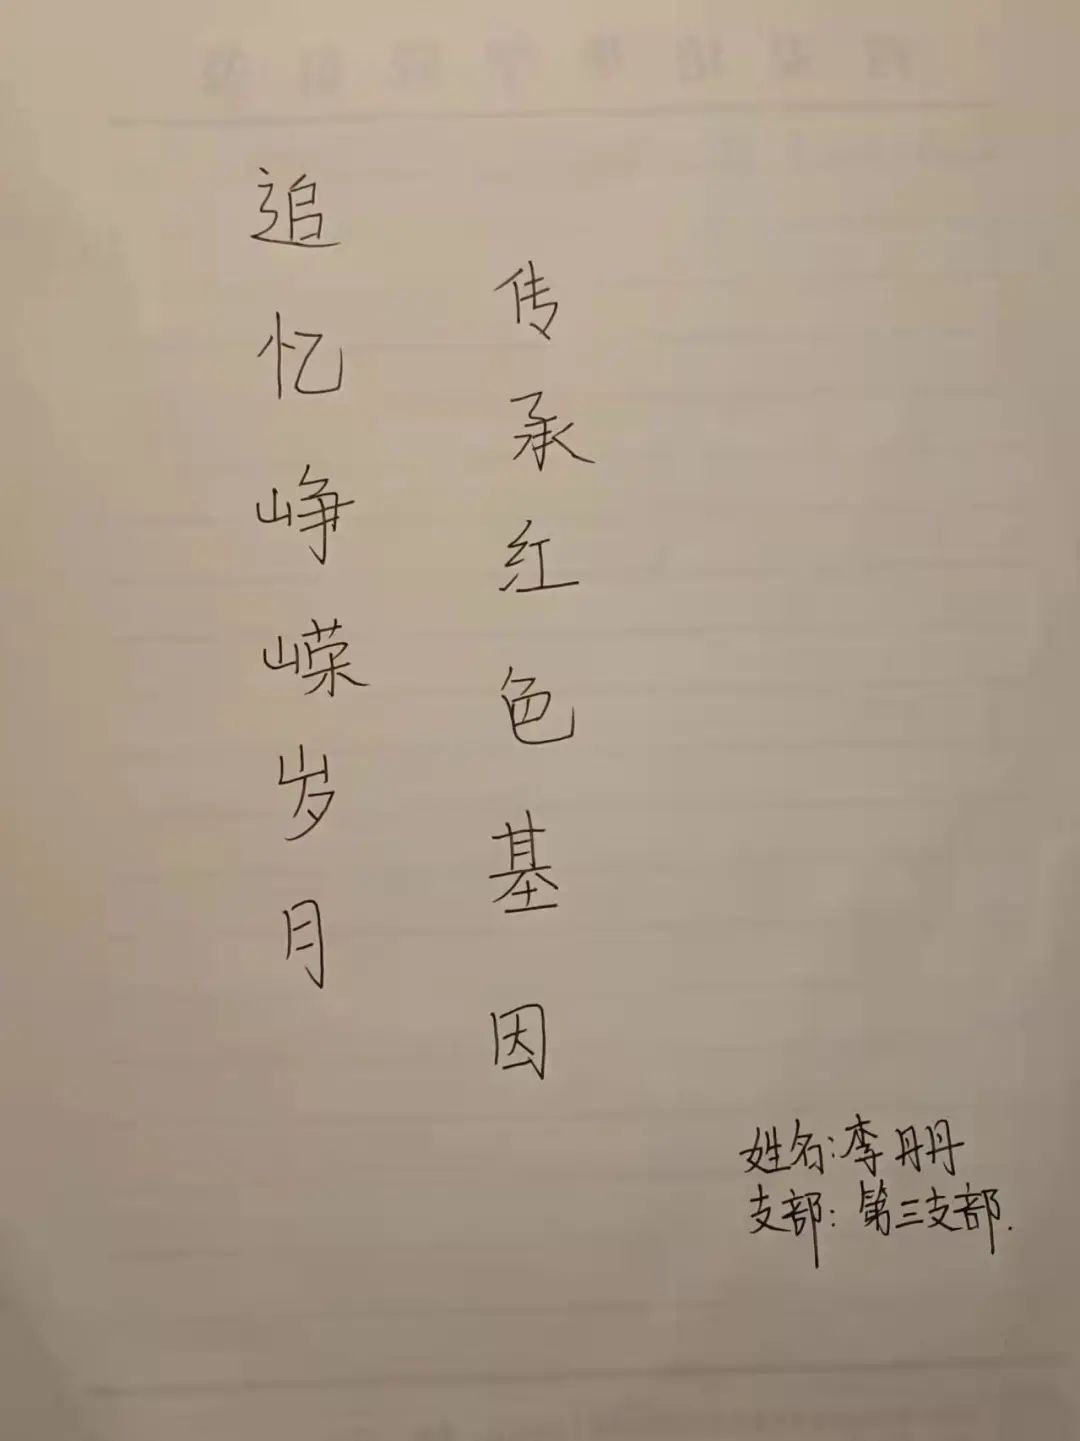 追忆峥嵘岁月
传承红色基因
姓名:李丹丹
支部:第三支部.